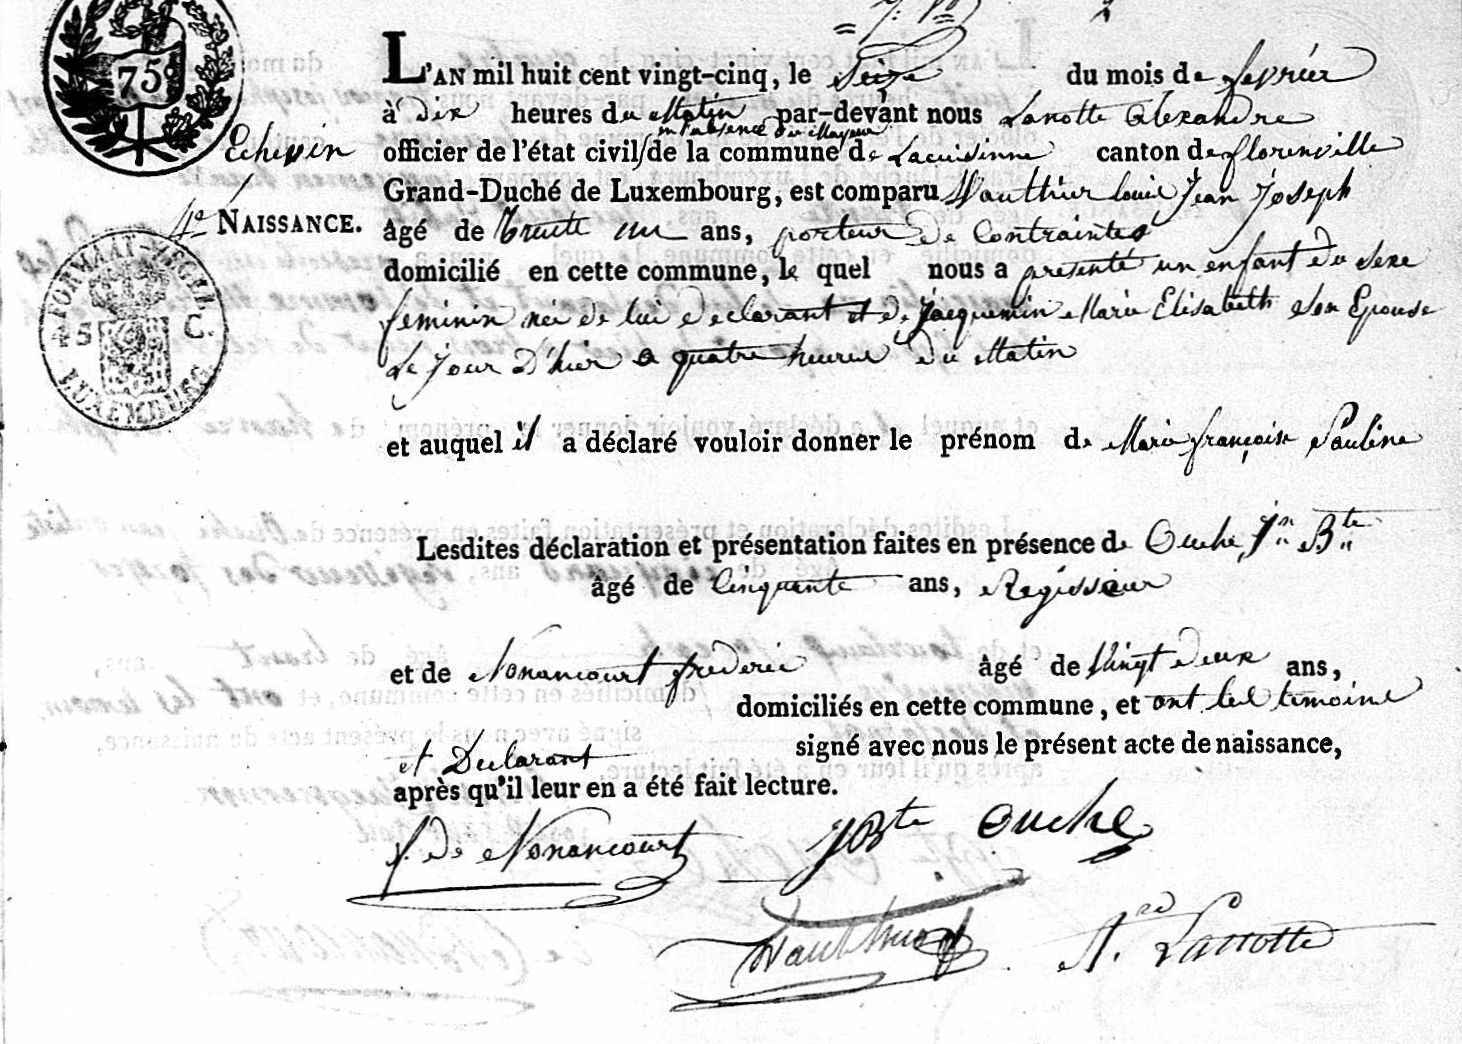 75c
L'AN mil huit cent vingt-cinq, le Seize du mois de fevrier
à dix heures du Matin par-devant nous Lanotte Alexandre
Echevin
en l'absence du Mayeur
officier de l'état civil de la commune de Lacuisinne canton de florenville
Grand-Duché de Luxembourg, est comparu Wauthier Louis Jean Joseph
4e NAISSANCE.
âgé de trente un ans, porteur de Contraintes
domicilié en cette commune, le quel nous a presenté un enfant du sexe
FORMAAT-ZEGEL
5 C.
LUXEMBURG
feminin né de lui declarant et de Jacquemin Marie Elisabeth son Epouse
Le jour D'hier a quatre heures du Matin
et auquel il a déclaré vouloir donner le prénom de Marie françoise Pauline
Lesdites déclaration et présentation faites en présence de Ouche, Jn Bte
âgé de Cinquante ans, Regisseur
et de Nonancourt frederic âgé de Vingt deux ans,
domiciliés en cette commune, et ont les temoins
et Declarant signé avec nous le présent acte de naissance,
après qu'il leur en a été fait lecture.
f. de Nonancourt JBte Ouche
Wauthier A.rd Lanotte